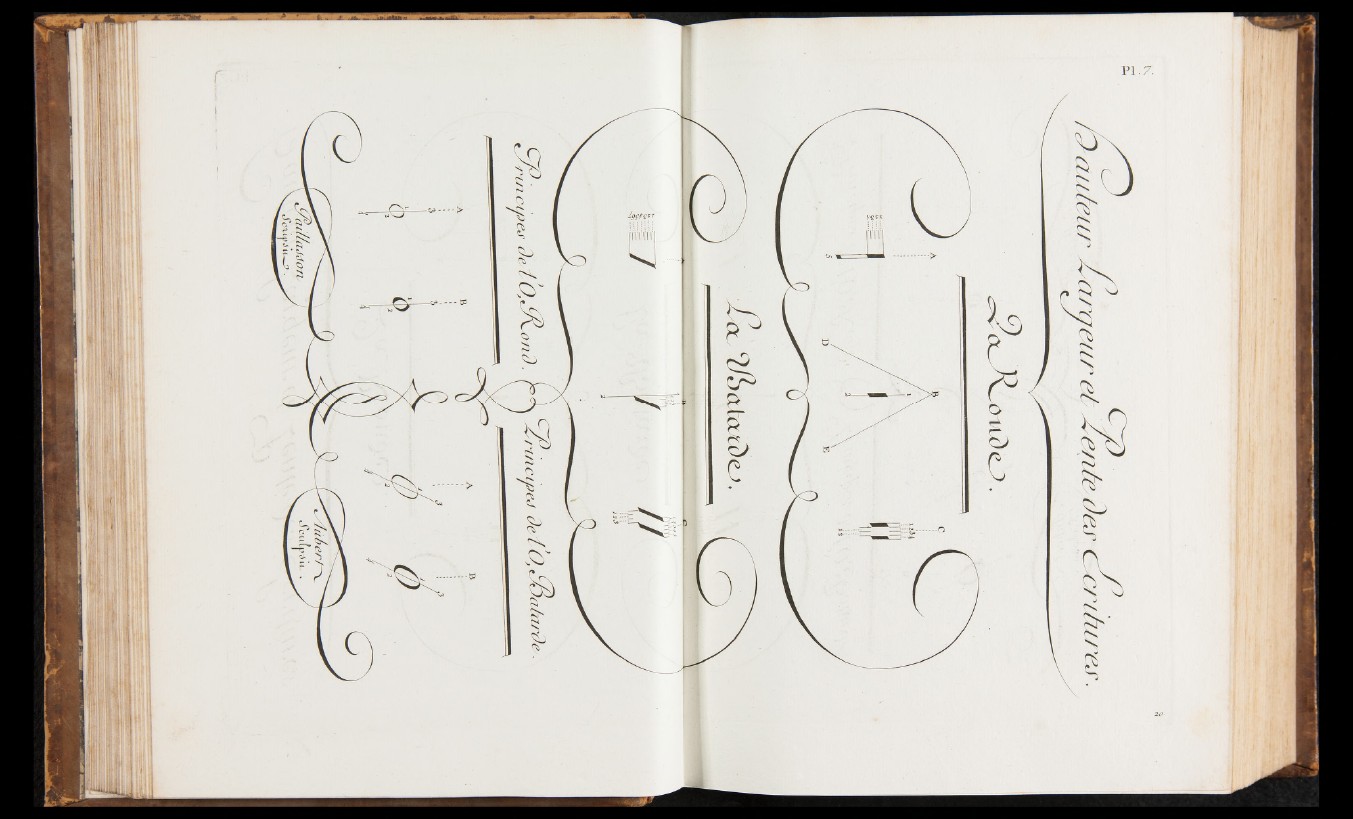 Pl. 7.
Hauteur Largeur et Pente des Ecritures.
La Ronde.
A
B
C
D
E
La Batarde.
Principes de l'O, Rond.
Principes de l'O, Batarde.
A
B
A
B
Paillasson
Scripsit
Aubert
Sculpsit.
20